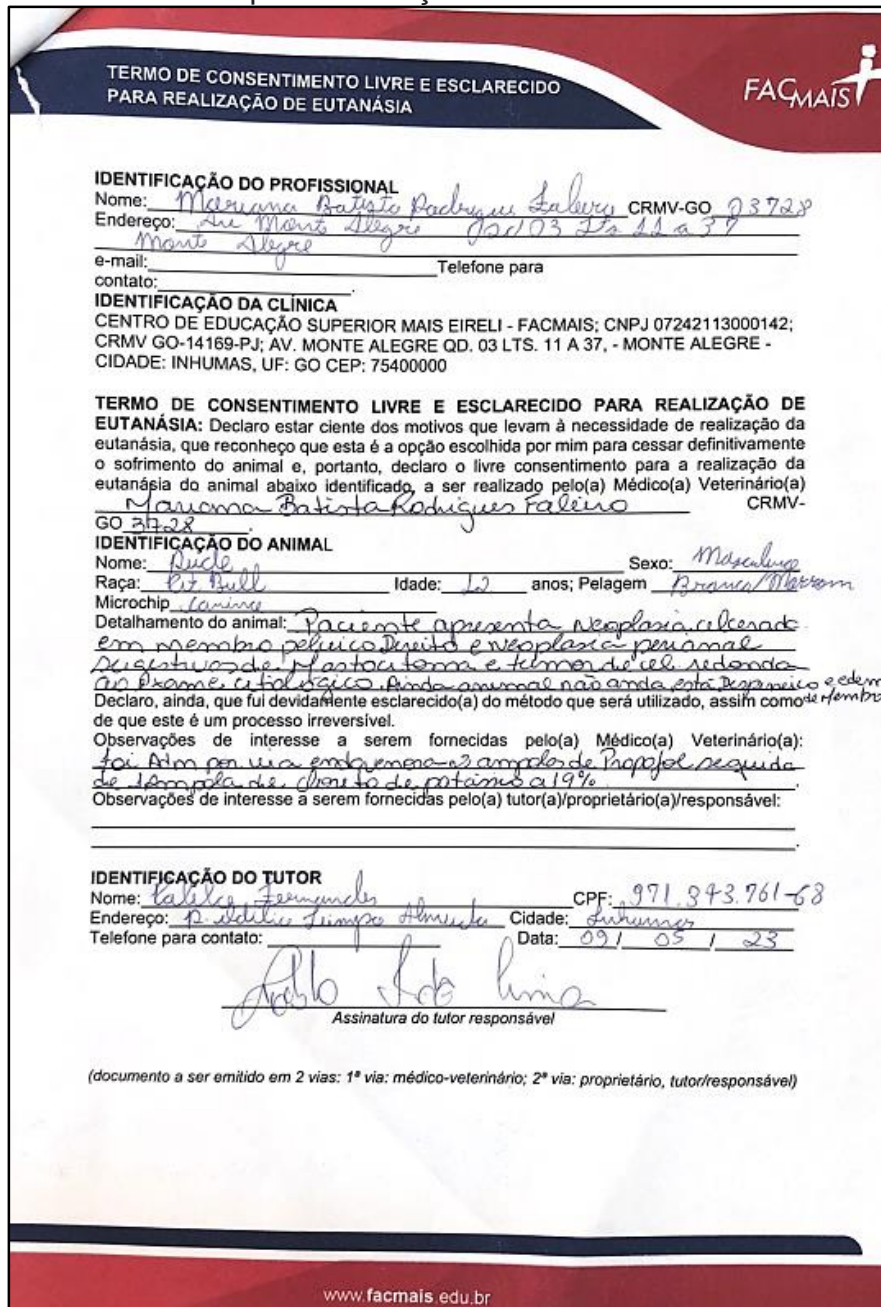 TERMO DE CONSENTIMENTO LIVRE E ESCLARECIDO
PARA REALIZAÇÃO DE EUTANÁSIA
FACMAIS
IDENTIFICAÇÃO DO PROFISSIONAL
Nome: Mariana Batista CRMV-GO 03728
Endereço: Av Monte Alegre Qd 03 Lts 11 a 37
Monte Alegre
e-mail: Telefone para
contato: .
IDENTIFICAÇÃO DA CLÍNICA
CENTRO DE EDUCAÇÃO SUPERIOR MAIS EIRELI - FACMAIS; CNPJ 07242113000142;
CRMV GO-14169-PJ; AV. MONTE ALEGRE QD. 03 LTS. 11 A 37, - MONTE ALEGRE -
CIDADE: INHUMAS, UF: GO CEP: 75400000
TERMO DE CONSENTIMENTO LIVRE E ESCLARECIDO PARA REALIZAÇÃO DE
EUTANÁSIA: Declaro estar ciente dos motivos que levam à necessidade de realização da
eutanásia, que reconheço que esta é a opção escolhida por mim para cessar definitivamente
o sofrimento do animal e, portanto, declaro o livre consentimento para a realização da
eutanásia do animal abaixo identificado, a ser realizado pelo(a) Médico(a) Veterinário(a)
Mariana Batista Rodrigues Faleiro CRMV-
GO 3728 .
IDENTIFICAÇÃO DO ANIMAL
Nome: Sexo: Masculino
Raça: Pit Bull Idade: 12 anos; Pelagem Branco/Marrom
Microchip canino
Detalhamento do animal: Paciente apresenta Neoplasia ulcerada
em membro pelvico Direito e neoplasia perianal
sugestivos de Mastocitoma e tumor de cel redonda
ao Exame citologico. Ainda animal não anda, está Dispneico e edema
de Membro
Declaro, ainda, que fui devidamente esclarecido(a) do método que será utilizado, assim como
de que este é um processo irreversível.
Observações de interesse a serem fornecidas pelo(a) Médico(a) Veterinário(a):
foi Adm por via endovenosa ampolas de Propofol seguida
de 1 Ampola de cloreto de potassio a 19% .
Observações de interesse a serem fornecidas pelo(a) tutor(a)/proprietário(a)/responsável:
IDENTIFICAÇÃO DO TUTOR
Nome: Fernandes CPF: 971.343.761-68
Endereço: Almeida Cidade: Inhumas
Telefone para contato: Data: 09 / 05 / 23
Assinatura do tutor responsável
(documento a ser emitido em 2 vias: 1ª via: médico-veterinário; 2ª via: proprietário, tutor/responsável)
www.facmais.edu.br